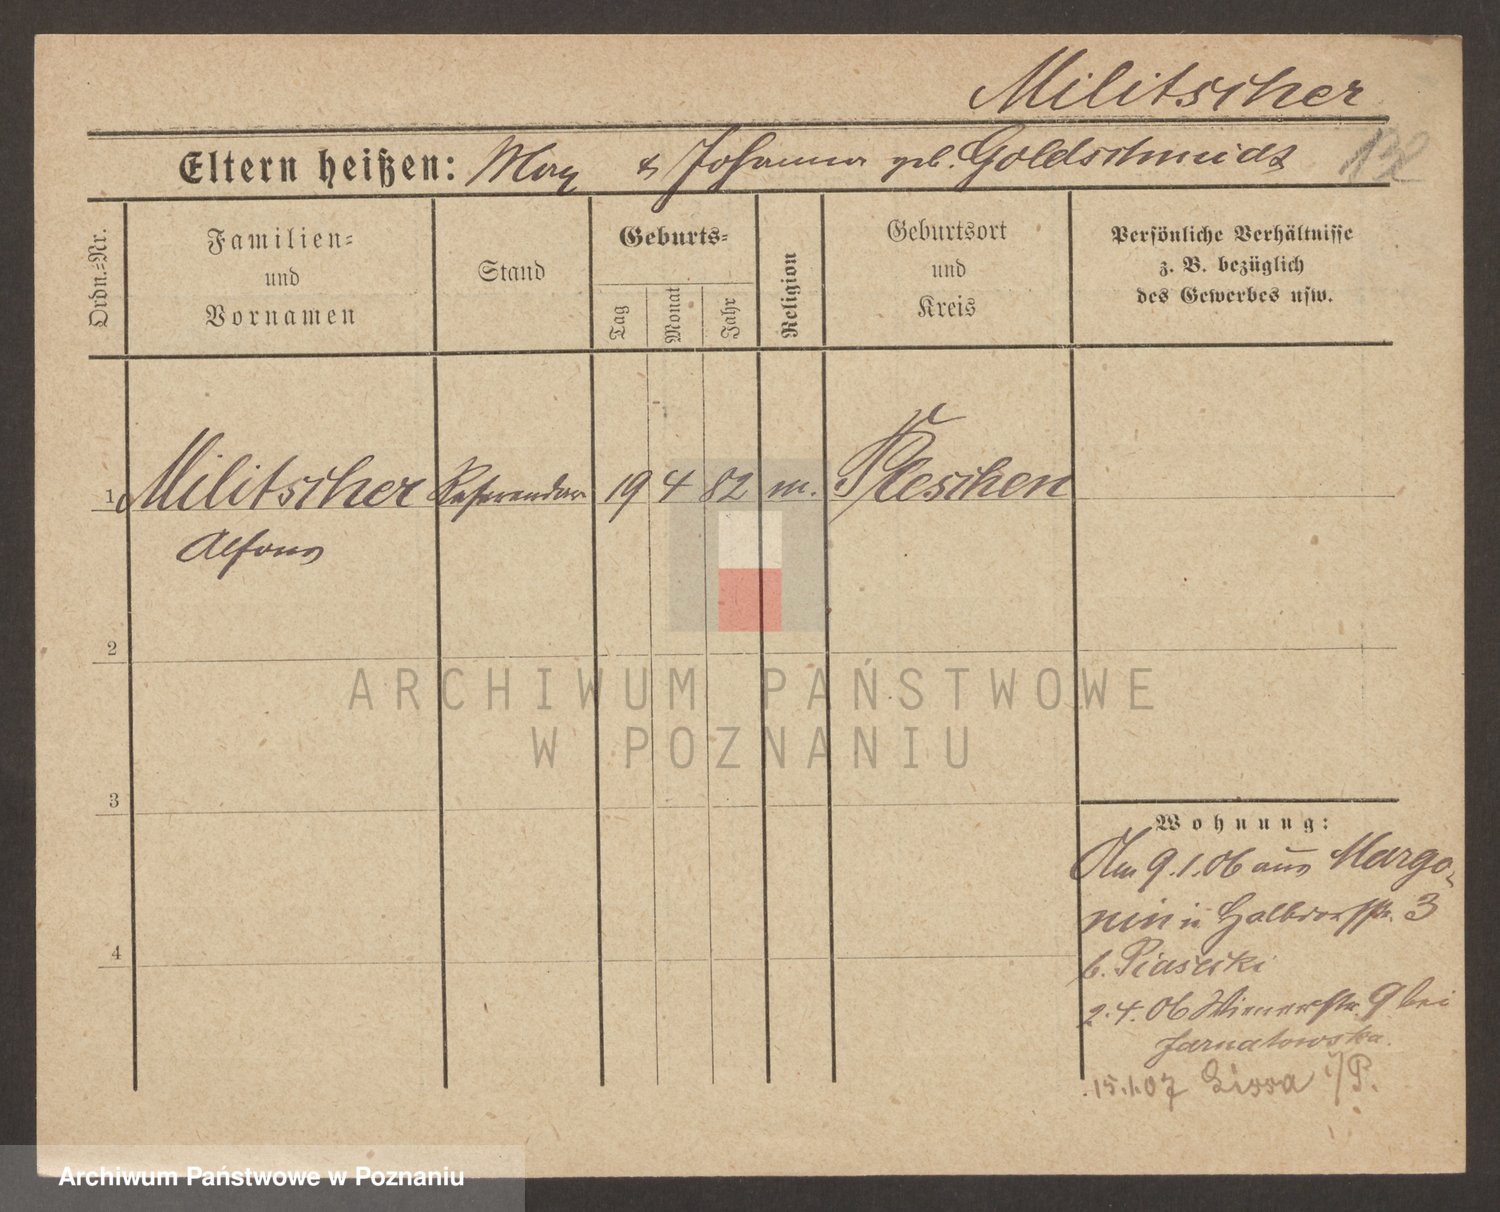 Militscher
Eltern heißen: Max & Johanna geb. Goldschmidt
132
Ordn.=Nr.
Familien=
und
Vornamen
Stand
Geburts=
Tag
Monat
Jahr
Religion
Geburtsort
und
Kreis
Persönliche Verhältnisse
z. B. bezüglich
des Gewerbes usw.
1 Militscher Referendar 19 4 82 m. Pleschen
Alfons
2
3
4
Wohnung:
Am 9.1.06 aus Margo-
nin n. Halbdorfstr. 3
b. Piasecki
2.4.06 Wienerstr. 9 bei
Jarnatowska.
15.1.07 Lissa i/P.
ARCHIWUM PAŃSTWOWE
W POZNANIU
Archiwum Państwowe w Poznaniu